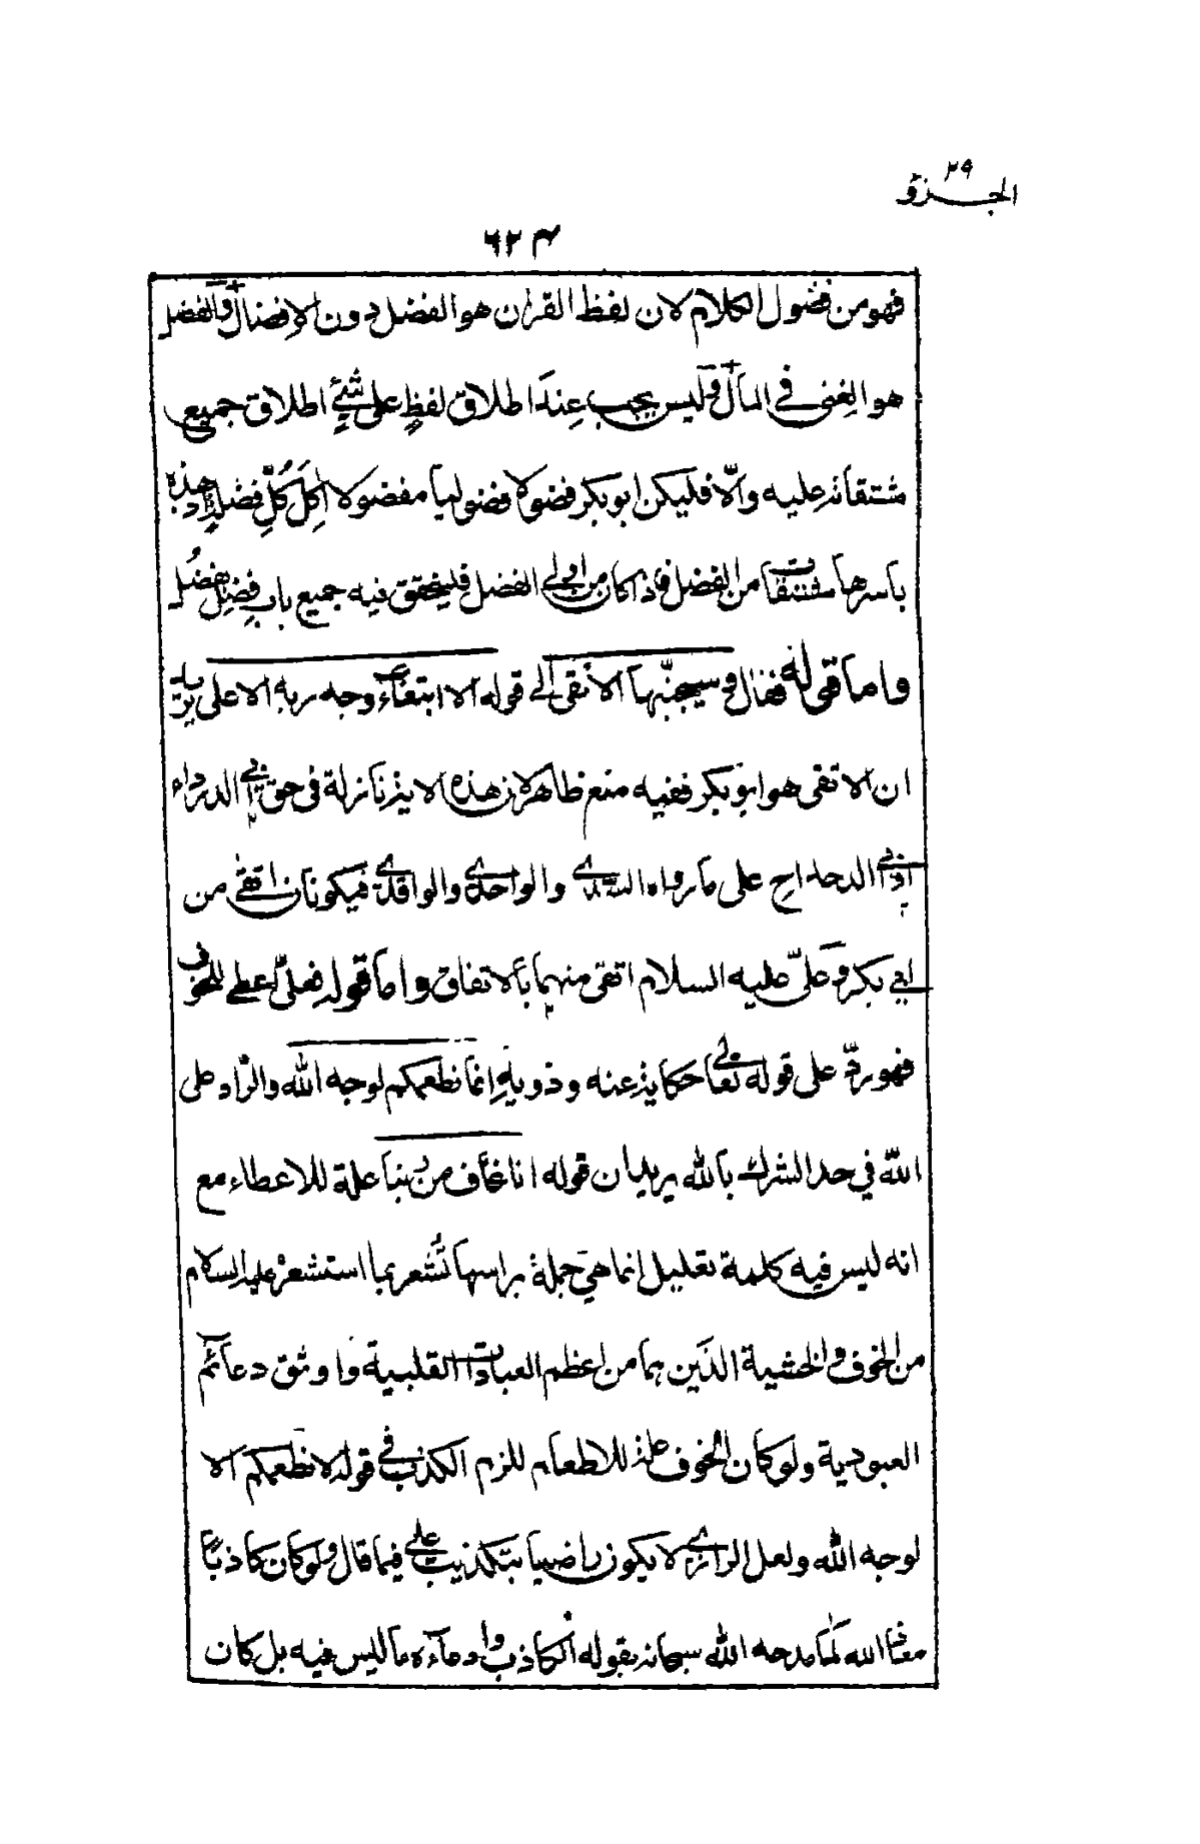 الجزؤ ٢٩
٦٢٣
فهو من فضول الكلام لان لفظ القران هو الفضل دون الافضال والفضل
هو الغنى فى المال وليس يجب عنه اطلاق لفظٍ على شئٍ اطلاق جميع
مشتقاته عليه والّا فليكن ابو بكر فضولا فضوليا مفضولا اذ كل هذه
باسرها مشتقات من الفضل فاذا كان من اولى الفضل فليحقق فيه جميع باب فضل يفضُل
واما قوله فقال وسيجنّبها الاتقى الى قوله الا ابتغاء وجه ربه الاعلى يريد
ان الاتقى هو ابو بكر ففيه منع ظاهر لان هذه الاية نازلة فى حق ابى الدرداء
او ابى الدحداح على ما رواه السّدى والواحدى والواقدى فيكونان اتقى من
ابي بكر وعلىّ عليه السلام اتقى منهما بالاتفاق واما قوله فعلىّ اعطى للخوف
فهو ردّ على قوله تعالى حكاية عنه وذويه انما نطعمكم لوجه الله والرّاد على
اللّه في حد الشرك بالله يريد ان قوله انا نخاف من ربنا علة للاعطاء مع
انه ليس فيه كلمة تعليل انما هي جملة براسها تُشعر بما استشعر عليه السلام
من الخوف والخشية الذين هما من اعظم العبادات القلبية واوثق دعائم
العبودية ولو كان الخوف علة للاطعام للزم الكذب فى قوله لا نطعمكم الا
لوجه الله ولعل الرازى لا يكون راضيا بتكذيب على فيما قال ولو كان كاذبًا
معاذ الله لما مدحه الله سبحانه بقوله الكاذب وادعاءه ما ليس فيه بل كان